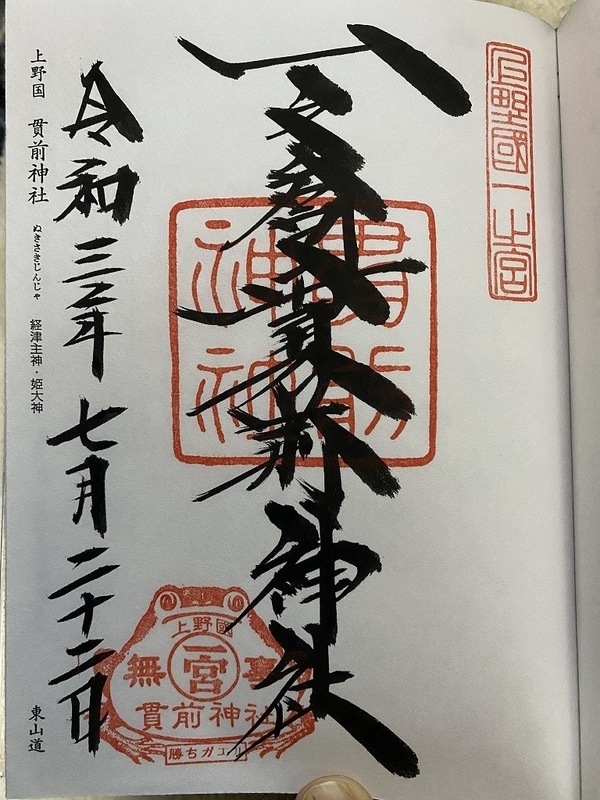 上野國一之宮
一之宮貫前神社
上野國
無 一宮 事
貫前神社
勝ちガエル
令和三年七月二十二日
上野国 貫前神社 ぬきさきじんじゃ 経津主神・姫大神
東山道